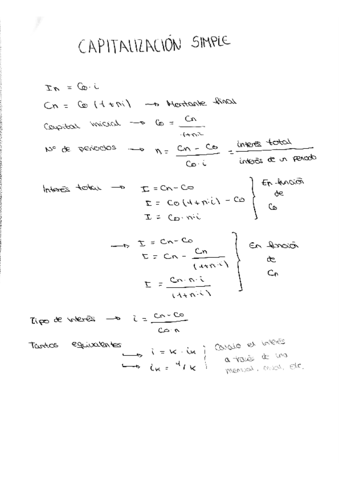 CAPITALIZACIÓN SIMPLE
In = Co · i
Cn = Co (1+n·i) → Montante final
Capital inicial → Co = Cn / 1+n·i
Nº de periodos → n = Cn - Co / Co · i = interés total / interés de un periodo
Interés total → I = Cn - Co
I = Co (1+n·i) - Co
I = Co · n · i
En función de Co
→ I = Cn - Co
I = Cn - Cn / (1+n·i)
I = Cn · n · i / (1+n·i)
En función de Cn
Tipo de interés → i = Cn - Co / Co · n
Tantos equivalentes
→ i = k · ik
→ ik = i/k
Calculo el interés
a través de una
mensual, etc.